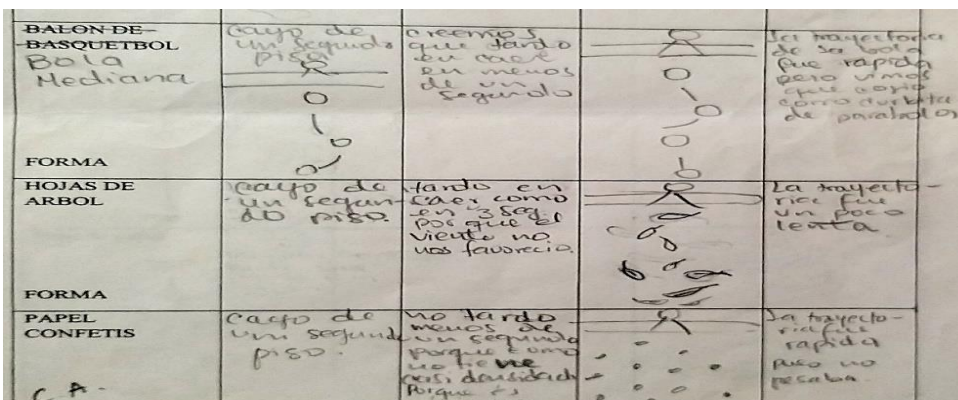 BALON DE
BASQUETBOL
Bola
Mediana
FORMA
cayo de
un segundo
piso
creemos
que tardo
en caer
en menos
de un
segundo
La trayectoria
de la bola
fue rapida
pero vimos
que
como
de parabola
HOJAS DE
ARBOL
FORMA
cayo de
un segun-
do piso.
tardo en
caer como
en 3 seg
por que el
viento no
nos favorecio.
La trayecto-
rica fue
un poco
lenta.
PAPEL
CONFETIS
C.A.
cayo de
un segundo
piso.
no tardo
menos de
un segundo
porque como
no tiene
casi densidad
Porque es
La trayecto-
ria fue
rapida
no
pesaba.